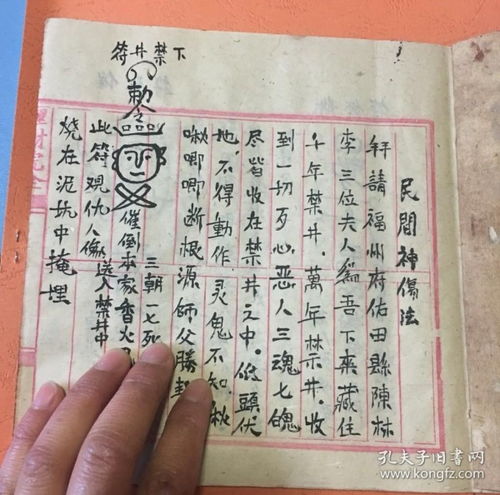 下禁井符
民間神傷法
拜請福州府佑田縣陳林
李三位夫人爲吾下來藏住
千年禁井。萬年禁井。收
到一切歹心惡人三魂七魄
尽皆收在禁井之中。低頭伏
地。不得動作 灵鬼不知。啾
啾唧唧断根源師父勝
三朝一七死
敕令
催倒本家香火
此符观仇人像送入禁井中
烧在泥坑中掩埋
孔夫子旧书网